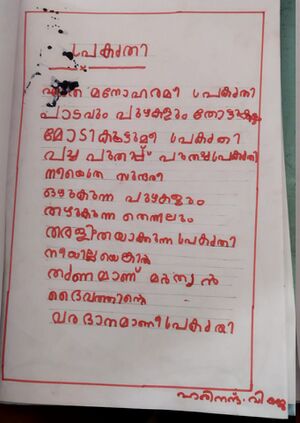 പ്രകൃതി
എത്ര മനോഹരമീ പ്രകൃതി
പാടവും പുഴകളും തോടുകളും
മോടികൂട്ടുമീ പ്രകൃതി
പച്ച പുതപ്പ് പുതച്ച പ്രകൃതി
നീയെത്ര സുന്ദരി
ഒഴുകുന്ന പുഴകളും
തഴുകുന്ന തെന്നലും
തരളിതയാക്കുന്ന പ്രകൃതി
നീയില്ലയെങ്കിൽ
തൃണമാണ് മർത്യൻ
ദൈവത്തിന്റെ
വരദാനമാണീ പ്രകൃതി
ഹരിനന്ദ്. വി